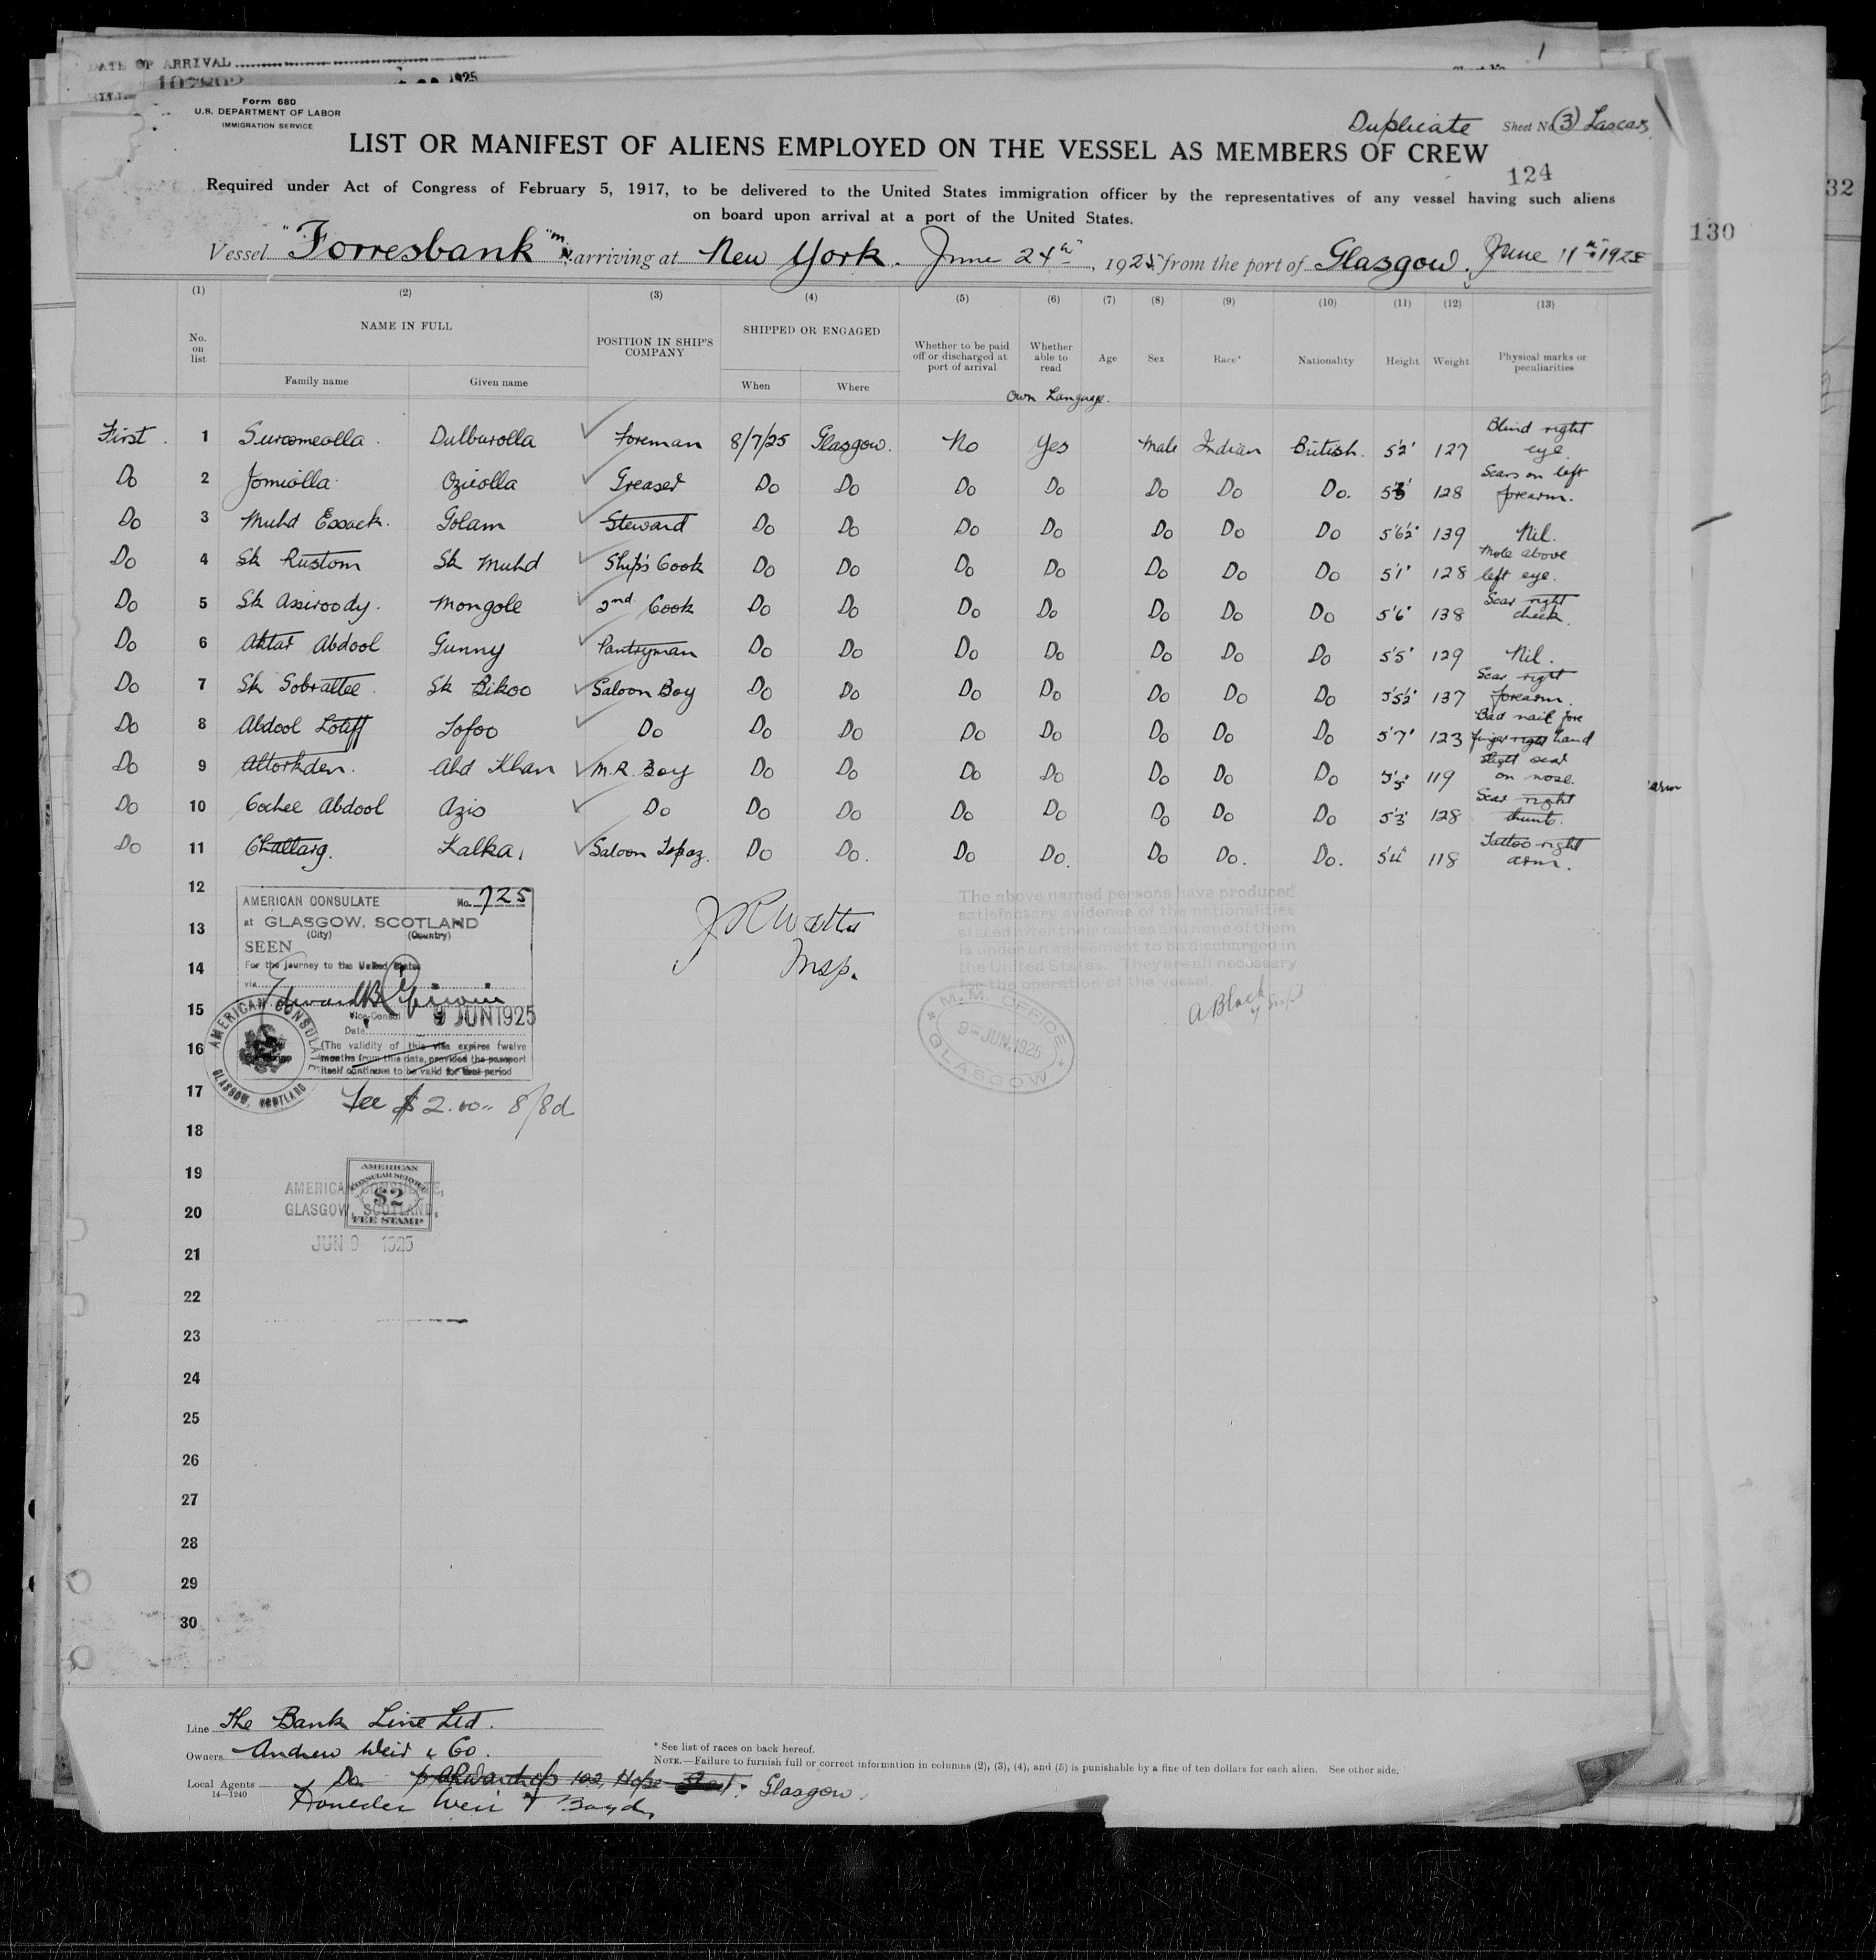 DATE OF ARRIVAL
107802 1925
1
Form 680
U.S. DEPARTMENT OF LABOR
IMMIGRATION SERVICE
Duplicate Sheet No (3) Lascars
LIST OR MANIFEST OF ALIENS EMPLOYED ON THE VESSEL AS MEMBERS OF CREW
124
32
130
Required under Act of Congress of February 5, 1917, to be delivered to the United States immigration officer by the representatives of any vessel having such aliens
on board upon arrival at a port of the United States.
Vessel "Forresbank" arriving at New York. June 24th, 1925, from the port of Glasgow. June 11th 1925
(1) (2) (3) (4) (5) (6) (7) (8) (9) (10) (11) (12) (13)
No. on list NAME IN FULL POSITION IN SHIP'S COMPANY SHIPPED OR ENGAGED Whether to be paid off or discharged at port of arrival Whether able to read Age Sex Race* Nationality Height Weight Physical marks or peculiarities
Family name Given name When Where
Own Language.
First. 1 Surcomeolla Dulburolla Foreman 8/7/25 Glasgow. No Yes Male Indian British. 5'2" 127 Blind right eye.
Do 2 Jomiolla Oziolla Greaser Do Do Do Do Do Do Do. 5'3" 128 Scars on left forearm.
Do 3 Muhd Essack. Golam Steward Do Do Do Do Do Do Do 5'6½" 139 Nil.
Do 4 Sk Rustom Sk Muhd Ship's Cook Do Do Do Do Do Do Do 5'1" 128 Mole above left eye.
Do 5 Sk Assiroody. Mongole 2nd Cook Do Do Do Do Do Do Do 5'6" 138 Scar right cheek.
Do 6 Aktar Abdool Gunny Pantryman Do Do Do Do Do Do Do 5'5" 129 Nil.
Do 7 Sk Sobrattee. Sk Bikoo Saloon Boy Do Do Do Do Do Do Do 5'5½" 137 Scar right forearm.
Do 8 Abdool Lotiff Tofoo Do Do Do Do Do Do Do Do 5'7" 123 Bad nail fore finger right hand
Do 9 Attorkden. Ahd Khan M.R. Boy Do Do Do Do Do Do Do 5'5" 119 Slight scar on nose.
Do 10 Cochee Abdool Azis Do Do Do Do Do Do Do Do 5'3" 128 Scar right thumb.
Do 11 Chattarg. Kalka Saloon Topaz. Do Do. Do Do. Do Do. Do. 5'4" 118 Tattoo right arm.
arm
12
13
14
15
16
17
18
19
20
21
22
23
24
25
26
27
28
29
30
AMERICAN CONSULATE No. 725
at GLASGOW, SCOTLAND
(City) (Country)
SEEN
For the journey to the United States
via
Vice-Consul
Date 9 JUN 1925
(The validity of this visa expires twelve
months from this date, provided the passport
itself continues to be valid for that period
AMERICAN CONSULATE
GLASGOW, SCOTLAND
Fee $2.00 = 8/8d
J R Watts
Insp.
The above named persons have produced
satisfactory evidence of the nationalities
stated after their names and none of them
is under an agreement to be discharged in
the United States. They are all necessary
for the operation of the vessel.
M.M. OFFICE
9-JUN.1925
GLASGOW
A Black
AMERICAN
CONSULAR SERVICE
$2
FEE STAMP
AMERICAN CONSULATE,
GLASGOW, SCOTLAND.
JUN 9 1925
Line The Bank Line Ltd.
Owners Andrew Weir & Co.
Local Agents Do 102, Hope Glasgow.
14—1240
Weir & Boyd
* See list of races on back hereof.
NOTE.—Failure to furnish full or correct information in columns (2), (3), (4), and (5) is punishable by a fine of ten dollars for each alien. See other side.